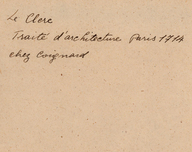 Le Clerc
Traité d'architecture Paris 1714
chez Coignard